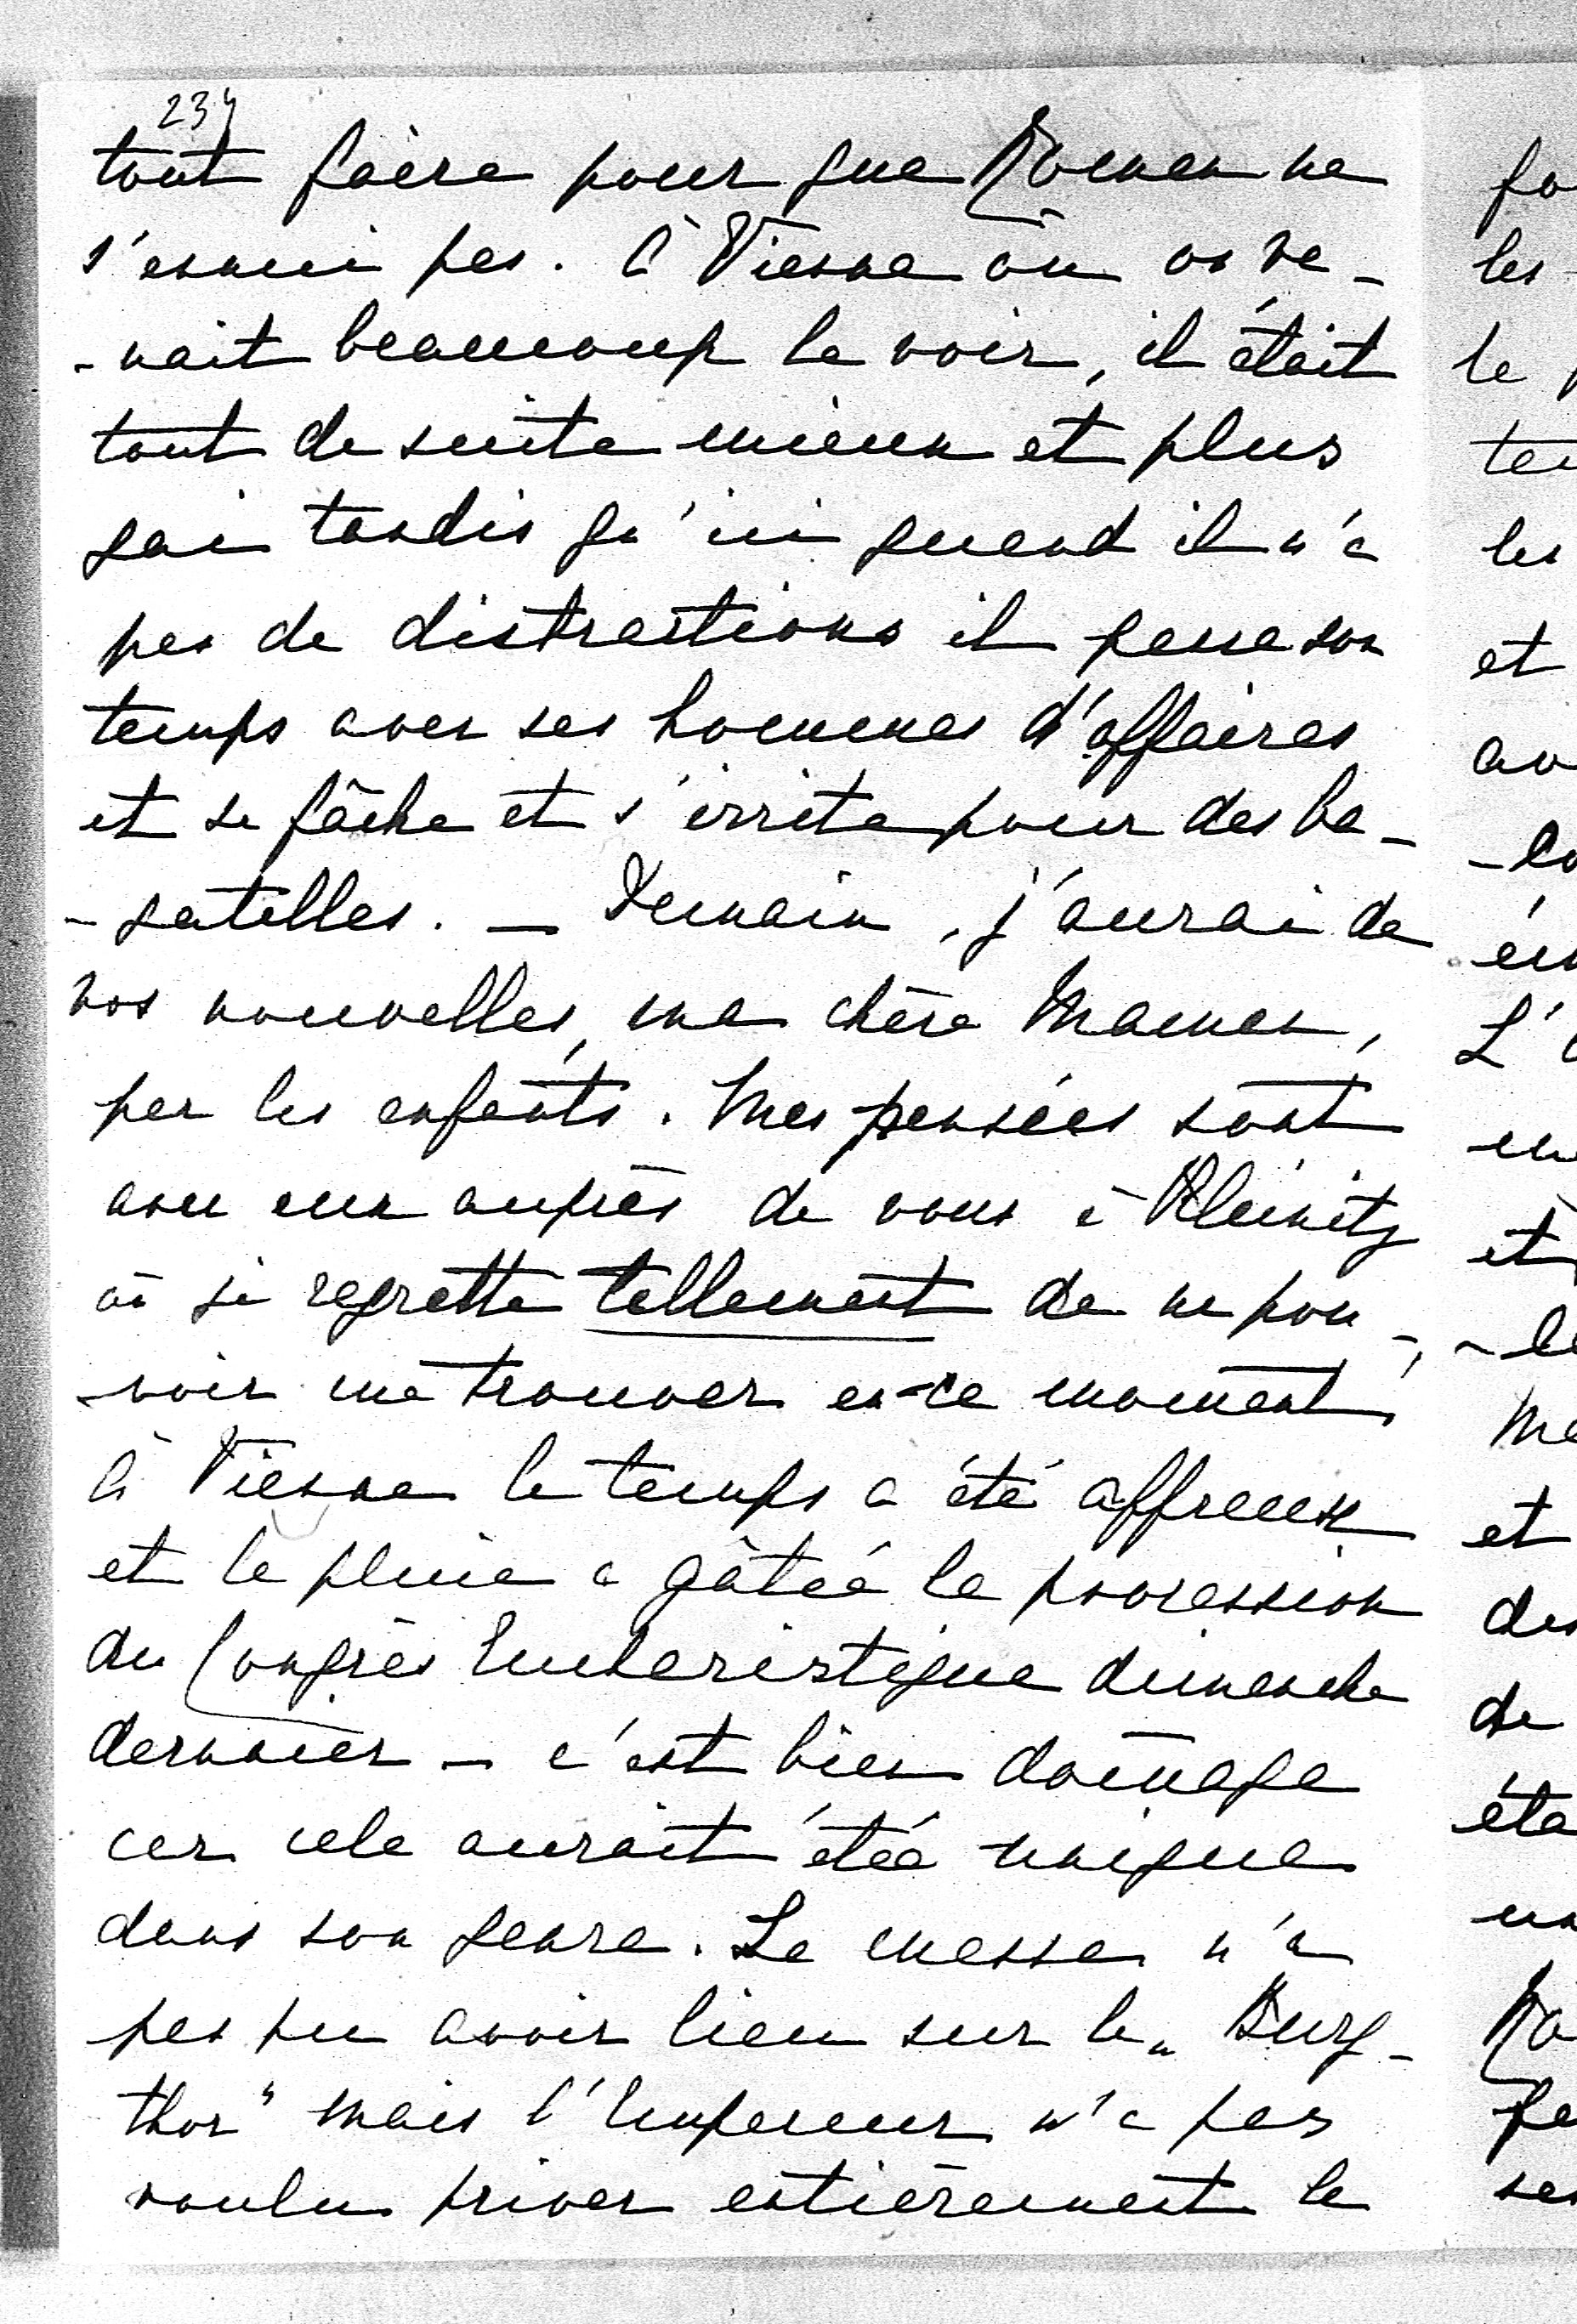 234
tout faire pour que Roman ne
s'ennui pas. À Vienne où on ve-
-nait beaucoup le voir, il était
tout de suite mieux et plus
gai tandis qu'ici quand il n'a
pas de distractions il passe son
temps avec ses hommes d'affaires
et se fâche et s'irrite pour des ba-
-gatelles. — Demain, j'aurai de
vos nouvelles, ma chère Maman,
par les enfants. Mes pensées sont
avec eux auprès de vous à Kleinitz
où je regrette tellement de ne pou-
-voir me trouver en ce moment.
À Vienne le temps a été affreux
et la pluie a gâtée la procession
du Congrès Eucharistique dimanche
dernier — c'est bien dom̄age
car cela aurait étée unique
dans son genre. La messe n'a
pas pu avoir lieu sur le „Burg-
thor" mais l'Empereur n'a pas
voulu priver entièrement le
fa
les
le
te
les
et
av
-lo
L'
et
-le
Me
et
des
de
éta
un
Ro
pe
ses